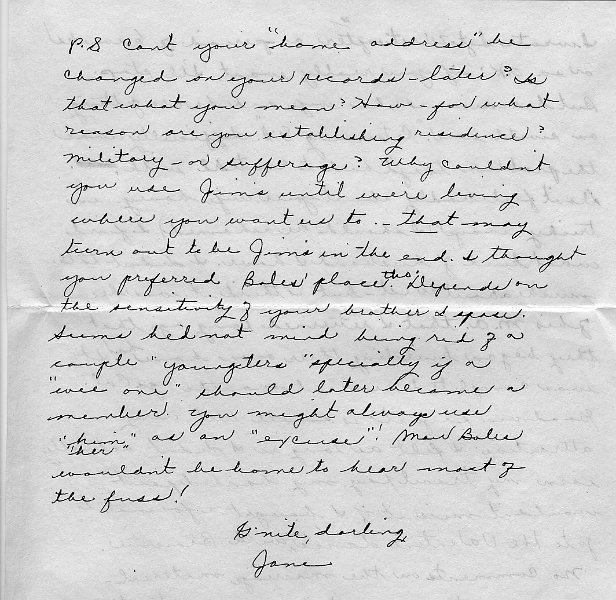 P.S Can't your "home address" be
changed on your records - later? Is
that what you mean? How - for what
reason are you establishing residence?
Military - or sufferage? Why couldn't
you use Jim's until we're living
where you want us to. - that may
turn out to be Jim's in the end. I thought
you preferred Bales' place tho'. Depends on
the sensitivity of your brother I spose.
Seems he'd not mind being rid of a
couple "youngsters" specially if a
"wee one" should later became a
member. You might always use
"him" as an "excuse"! Maw Bales
"her"
wouldn't be home to hear most of
the fuss!
G'nite, darling,
Jane